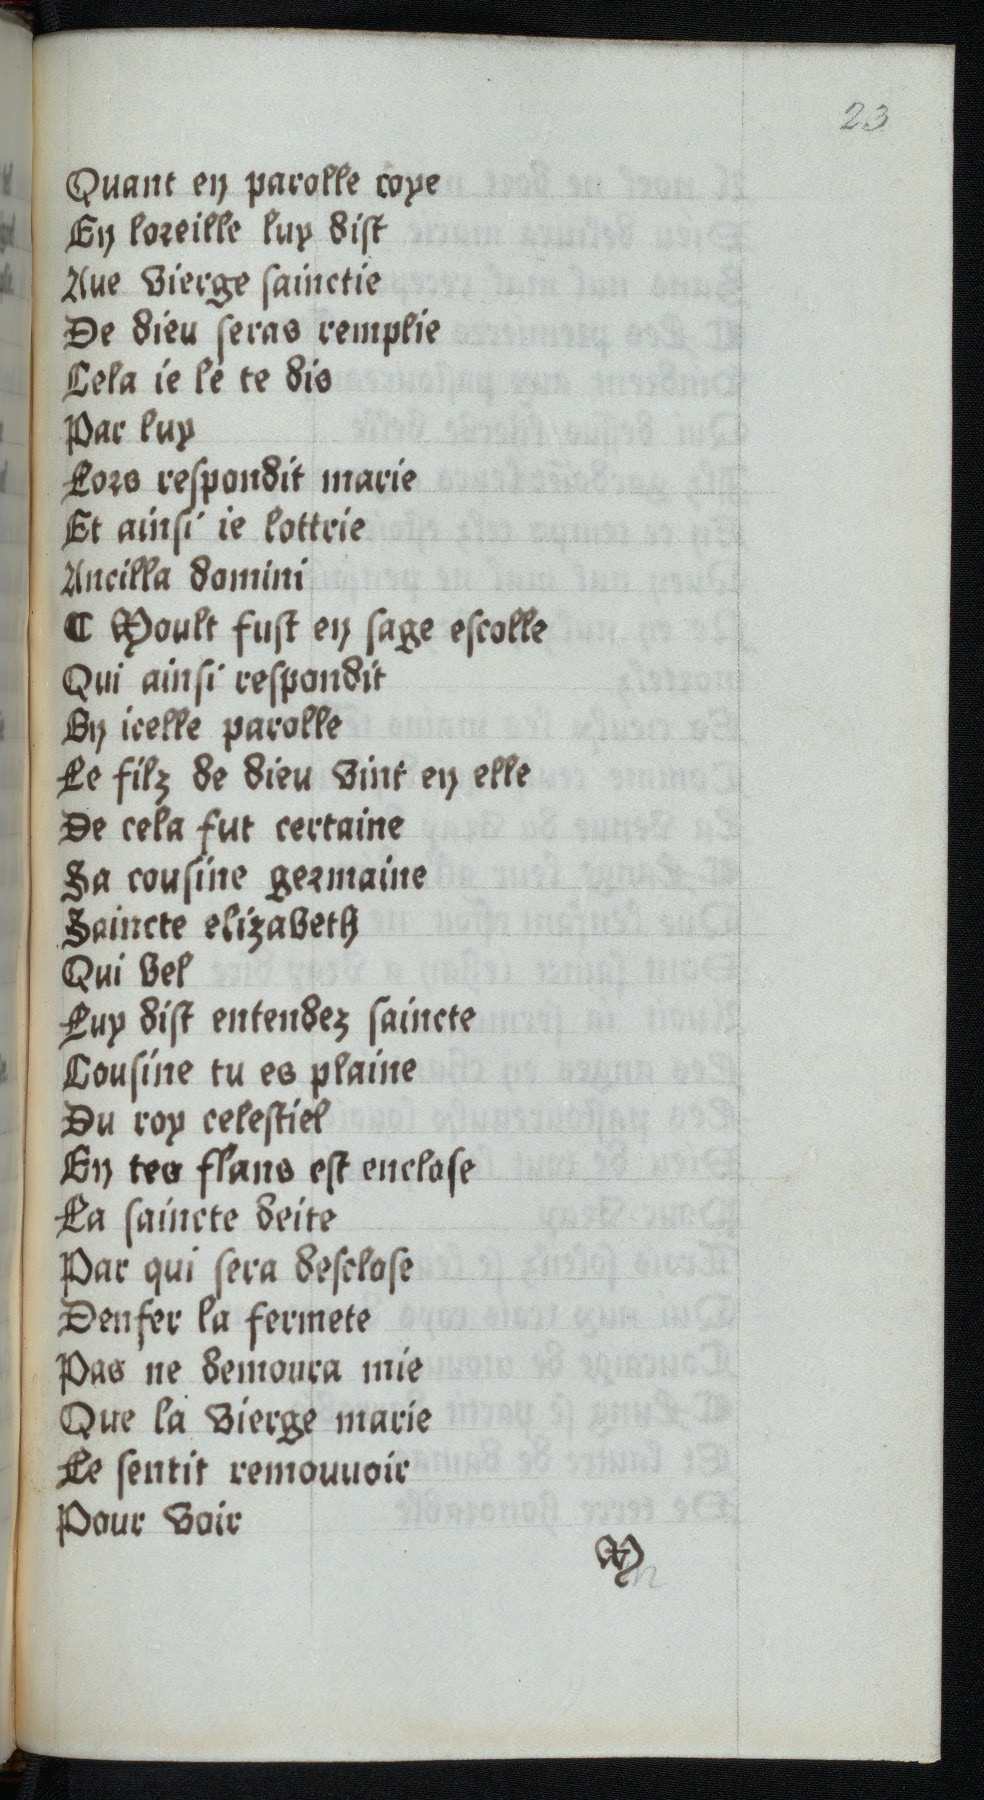 23
Quant en parolle coye
En loreille luy dist
Aue vierge sainctie
De dieu seras remplie
Cela ie le te dis
Par luy
Lors respondit marie
Et ainsi ie lottrie
Ancilla domini
¶ Moult fust en sage escolle
Qui ainsi respondit
En icelle parolle
Le filz de dieu vint en elle
De cela fut certaine
Sa cousine germaine
Saincte elizabeth
Qui vel
Luy dist entendez saincte
Cousine tu es plaine
Du roy celestiel
En tes flans est enclose
La saincte deite
Par qui sera desclose
Denfer la fermete
Pas ne demoura mie
Que la vierge marie
Le sentit remouuoir
Pour voir
M